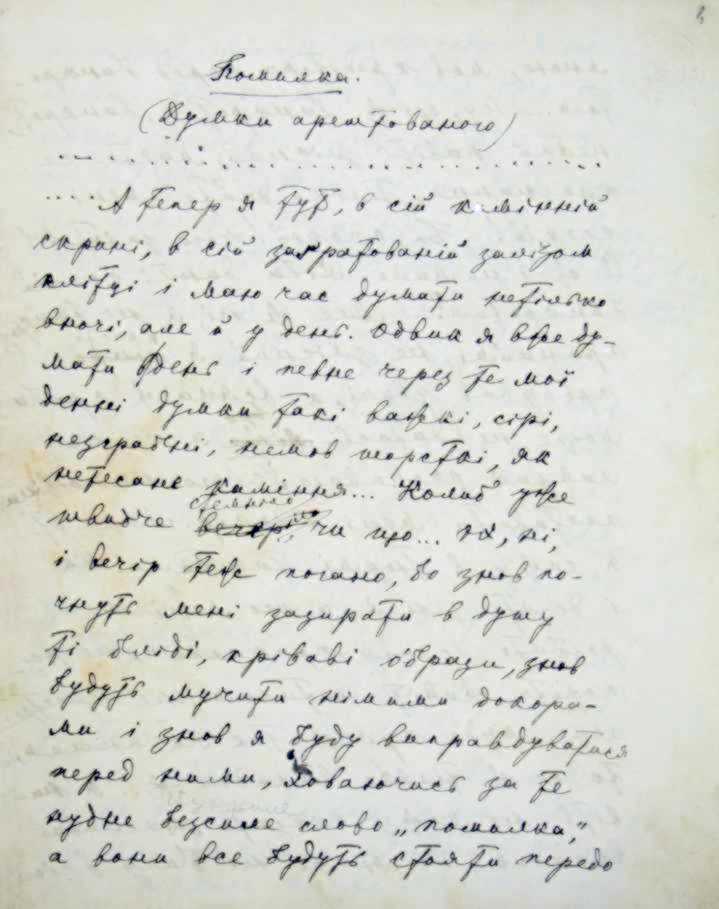 Помилка.
(Думки арештованого)
. . . . . . . . . . . . . . . . . . . . . . . .
.... А тепер я тут, в сій камінній
скрині, в сій заґратованій залізом
клітці і маю час думати нетілько
вночі, але й у день. Одвик я вже ду-
мати в день і певне через те мої
денні думки такі важкі, сірі,
незграбні, немов шорсткі, як
нетесане каміння... Колиб уже
швидче стемніло, чи що... ох, ні,
і вечір теж погано, бо знов по-
чнуть мені зазирати в душу
ті бліді, кріваві образи, знов
будуть мучити німими докора-
ми і знов я буду виправдуватися
перед ними, ховаючись за те
нудне безсиле слово „помилка",
а вони все будуть стояти передо